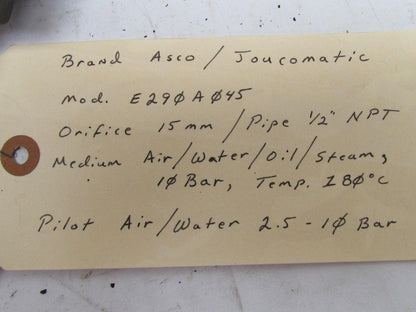 Brand Asco / Joucomatic
Mod. E290A045
Orifice 15mm / Pipe 1/2" NPT
Medium Air/Water/Oil/Steam,
10 Bar, Temp. 180°C
Pilot Air/Water 2.5 - 10 Bar